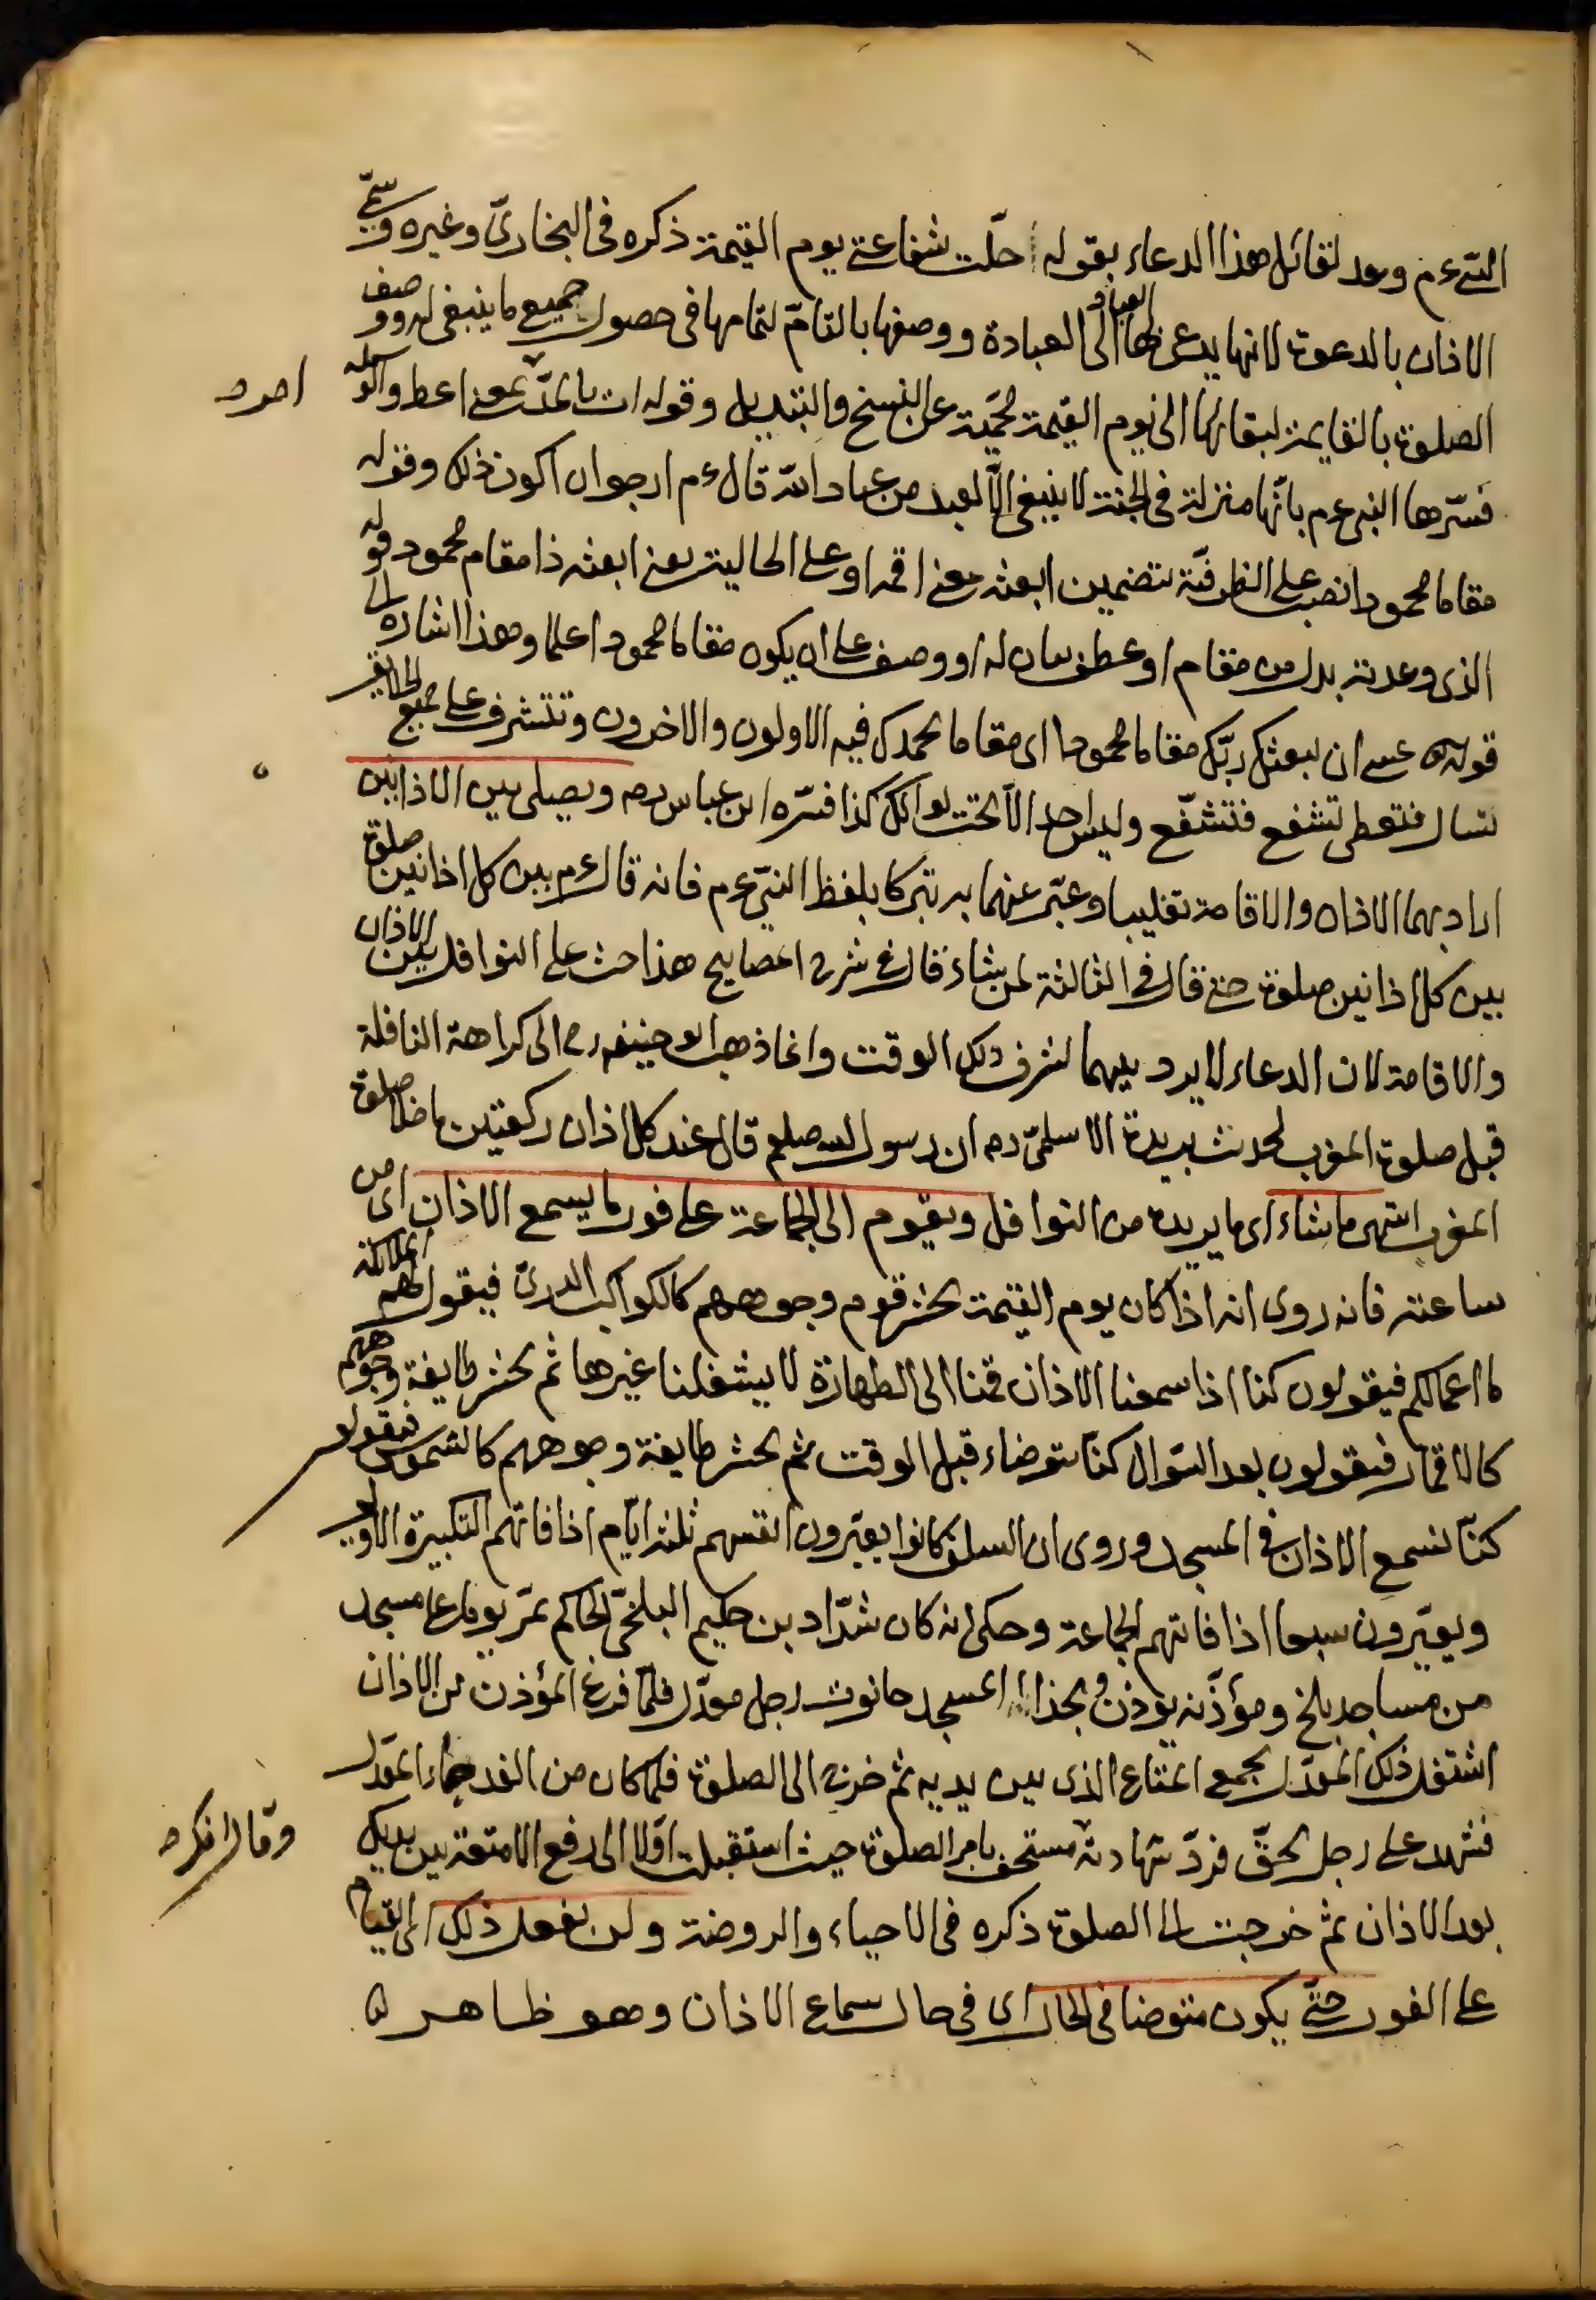 النبي ءم وعد لقائل هذا الدعاء بقوله حلت شفاعتي يوم القيمة ذكره في البخاري وغيره وسمي
الاذان بالدعوة لانها يدعى بها العباد الى العبادة ووصفها بالتامة لتمامها في حصول جميع ما ينبغي له ووصف
الصلوة بالقايمة لبقائها الى يوم القيمة محمية عن النسخ والتبديل وقوله ات بالمد بمعنى اعط والوسيلة
فسرها النبي ءم بانها منزلة في الجنة لا ينبغي الا لعبد من عباد الله قال ءم ارجو ان اكون ذلك وقوله
مقاما محمودا نصب على الظرفية بتضمين ابعثه معنى اقمه او على الحالية يعني ابعثه ذا مقام محمود قوله
الذي وعدته بدل من مقام او عطف بيان له او وصف على ان يكون مقاما محمودا علما وهذا اشارة الى
قوله تع عسى ان يبعثك ربك مقاما محمودا اى مقاما يحمدك فيه الاولون والاخرون وتتشرف على جميع الخلايق
تسال فتعطى تشفع فتشفع وليس احد الا تحت لوائك كذا فسره ابن عباس رم ويصلى بين الاذانين
اراد بهما الاذان والاقامة تغليبا وعبر عنهما به تبركا بلفظ النبي ءم فانه قال ءم بين كل اذانين صلوة
بين كل اذانين صلوة حتى قال في الثالثة لمن شاء قال في شرح المصابيح هذا حث على النوافل بين الاذان
والاقامة لان الدعاء لا يرد بينهما لشرف ذلك الوقت وانما ذهب ابو حنيفه رح الى كراهة النافلة
قبل صلوة المغرب لحديث بريدة الاسلمي رم ان رسول الله صلعم قال عند كل اذان ركعتين ما خلا صلوة
المغرب انتهى ما شاء اى ما يريده من النوافل ويقوم الى الجماعة على فور ما يسمع الاذان اى من
ساعته فانه روى انه اذا كان يوم القيمة يحشر قوم وجوههم كالكواكب الدرى فيقول لهم الملائكة
ما اعمالكم فيقولون كنا اذا سمعنا الاذان قمنا الى الطهارة لا يشغلنا غيرها ثم يحشر طايفة وجوههم
كالاقمار فيقولون بعد السؤال كنا نتوضاء قبل الوقت ثم يحشر طايفة وجوههم كالشموس فيقولون
كنا نسمع الاذان في المسجد وروى ان السلف كانوا يعيرون انفسهم ثلثة ايام اذا فاتهم التكبيرة الاولى
ويعيرون سبعا اذا فاتهم الجماعة وحكى انه كان شداد بن حكيم البلخي الحاكم يمر يوما على مسجد
من مساجد بلخ ومؤذنه يؤذن وبحذاء المسجد حانوت رجل معدل فلما فرغ المؤذن من الاذان
اشتغل ذلك المعدل بجمع المتاع الذي بين يديه ثم خرج الى الصلوة فلما كان من الغد جاء المعدل
فشهد على رجل بحق فرد شهادته مستخف بامر الصلوة حيث استقبلت اولا الى رفع الامتعة بين يديك
بعد الاذان ثم خرجت الى الصلوة ذكره في الاحياء والروضة ولن يفعل ذلك اى القيام
على الفور حتى يكون متوضا في الحال اى في حال سماع الاذان وهو ظاهر
وقال انك